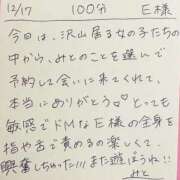 12/17 100分 E様
今日は、沢山居る女の子たちの
中から、みとのことを選んで
予約して会いに来てくれて、
本当にありがとう♡とっても
敏感でドMなE様の全身を
指や舌で責めるの楽しくて、
興奮しちゃった!!!また遊ぼうね!!
みと